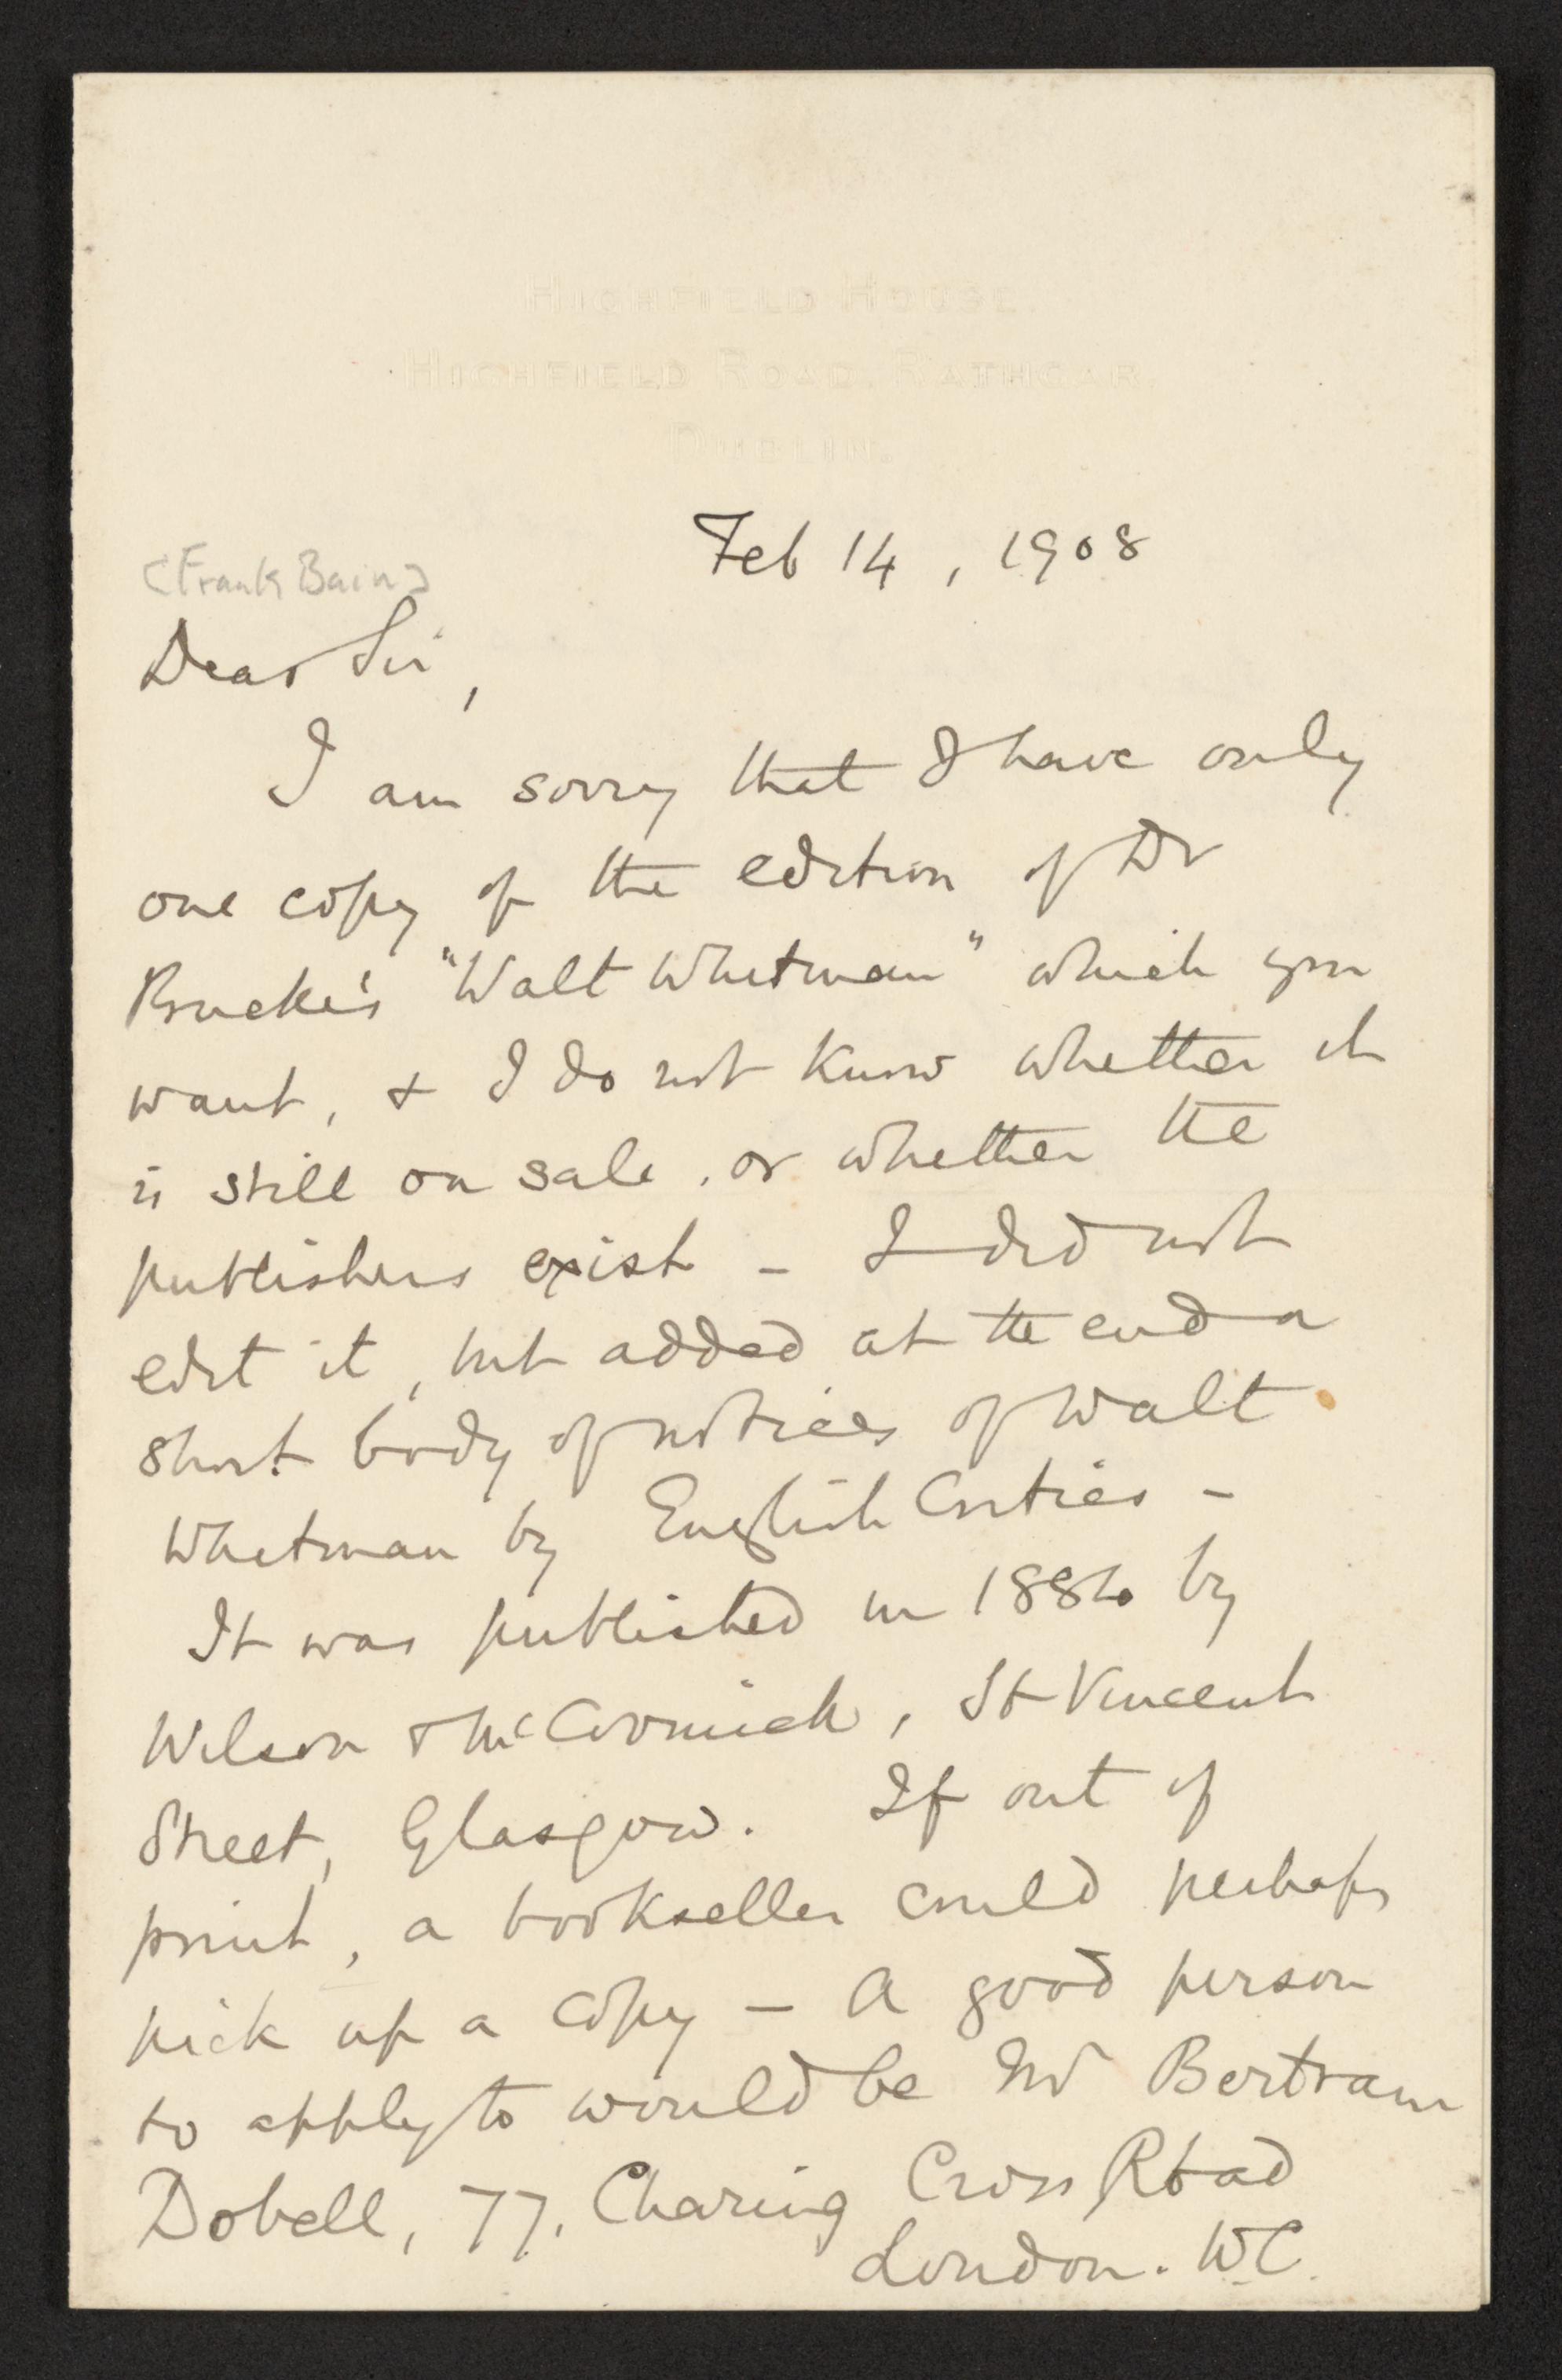 HIGHFIELD HOUSE.
HIGHFIELD ROAD, RATHGAR,
DUBLIN.
Feb 14, 1908
[Frank Bain]
Dear Sir,
I am sorry that I have only
one copy of the edition of Dr
Bucke's "Walt Whitman" which you
want, & I do not know whether it
is still on sale, or whether the
publishers exist - I did not
edit it, but added at the end a
short body of notices of Walt
Whitman by English Critics -
It was published in 1884 by
Wilson & McCormick, St Vincent
Street, Glasgow. If out of
print, a bookseller could perhaps
pick up a copy - A good person
to apply to would be Mr Bertram
Dobell, 77, Charing Cross Road
London. WC.